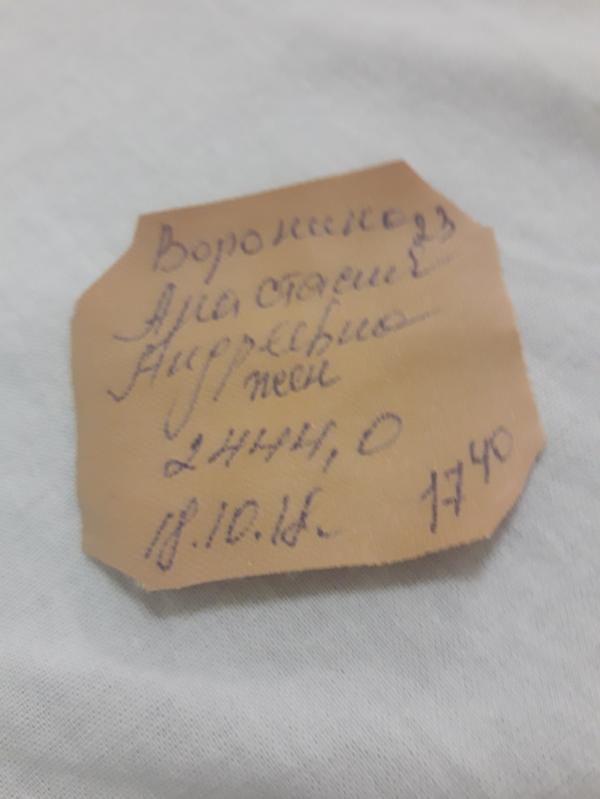 Воронина 23
Анастасия
Андреевна
жен
2444,0
18.10.18. 17 40